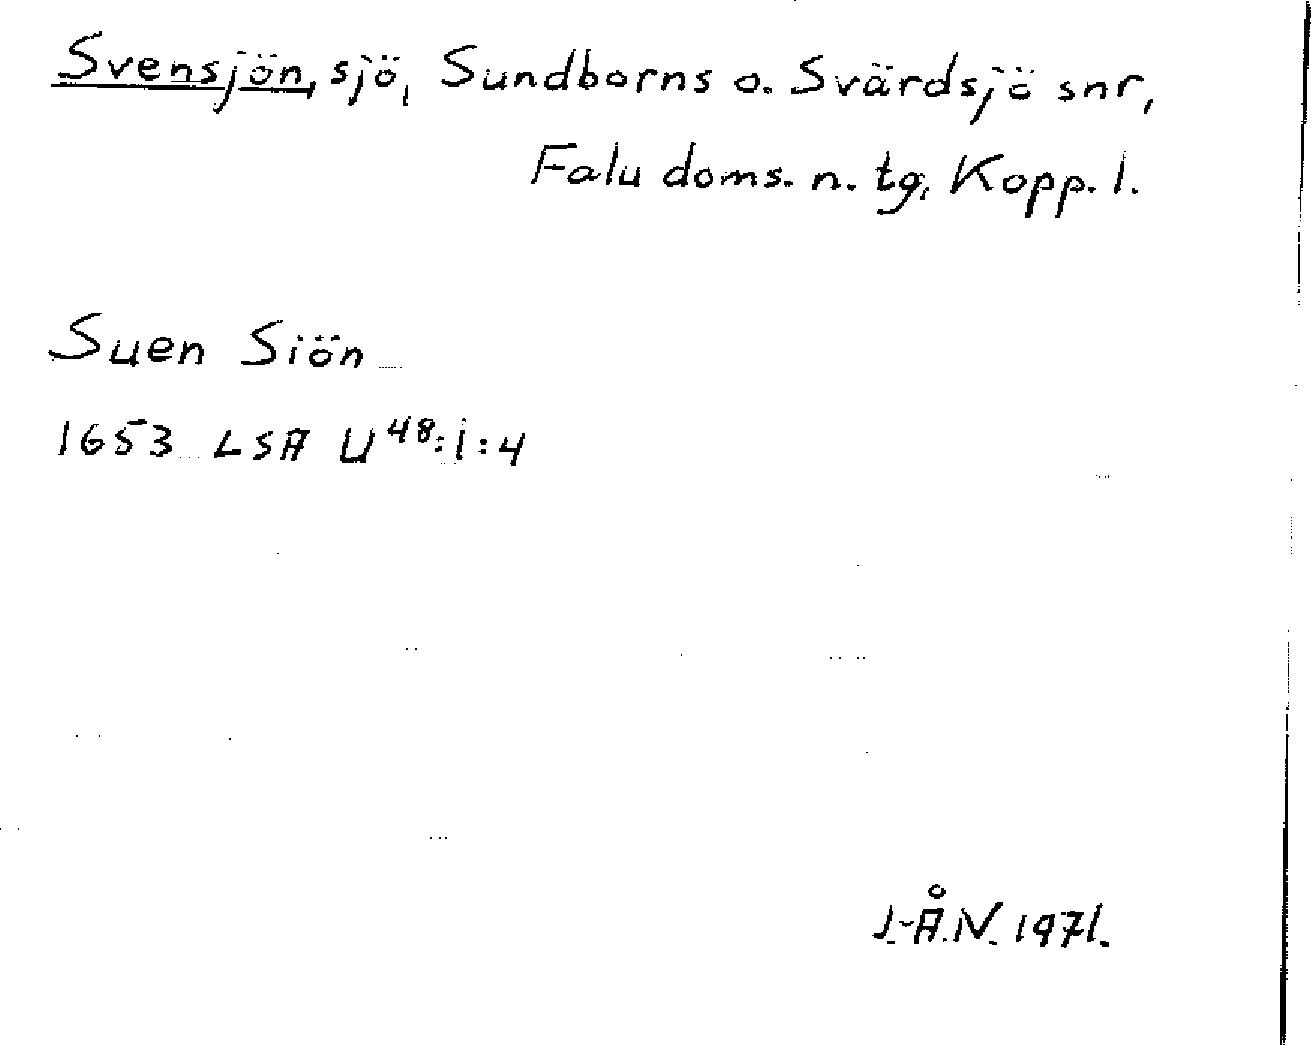 Svensjön, sjö, Sundborns o. Svärdsjö snr,
Falu doms. n. tg, Kopp. l.
Suen Siön
1653 LSA U48:1:4
J.-Å.N. 1971.